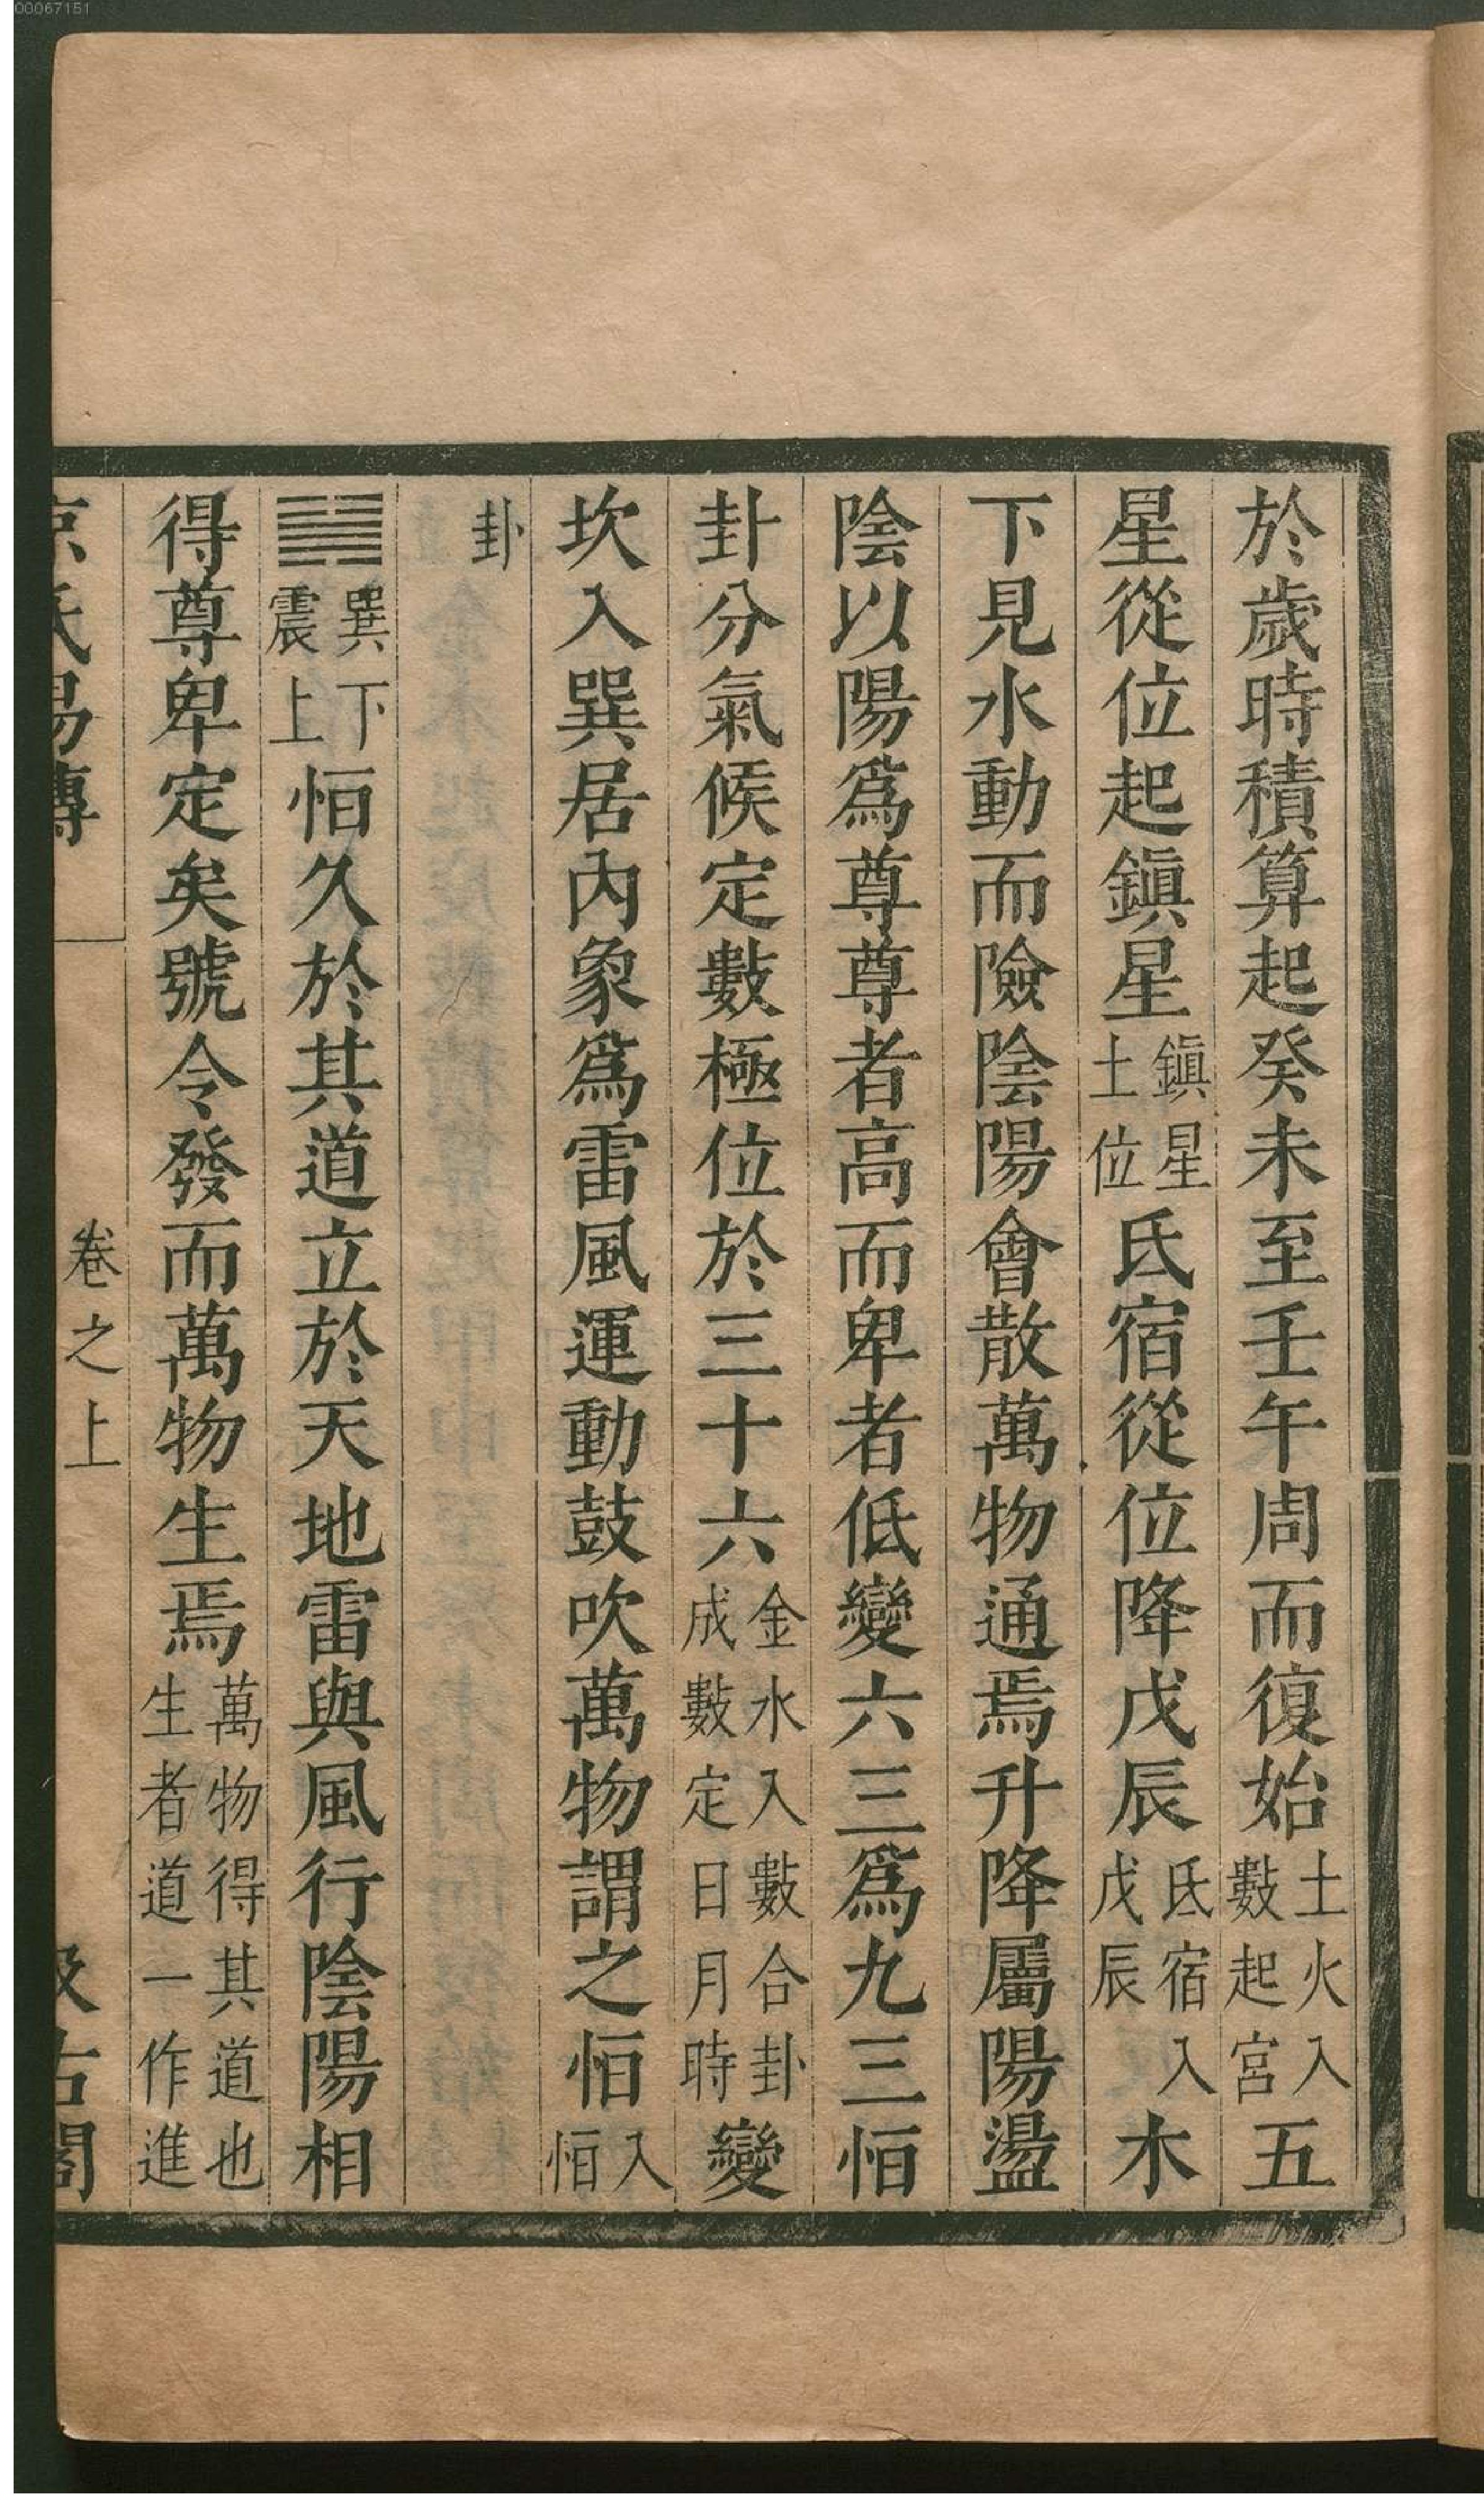 00067151
於歲時積算起癸未至壬午周而復始土火入數起宮五
星從位起鎭星鎭星土位氐宿從位降戊辰氐宿入戊辰木
下見水動而險陰陽會散萬物通焉升降屬陽盪
陰以陽爲尊尊者高而卑者低變六三爲九三恒
卦分氣候定數極位於三十六金水入數合卦成數定日月時變
坎入巽居內象爲雷風運動鼓吹萬物謂之恒入恒
卦
䷟巽下震上恒久於其道立於天地雷與風行陰陽相
得尊卑定矣號令發而萬物生焉萬物得其道也生者道一作進
京氏易傳 卷之上 汲古閣